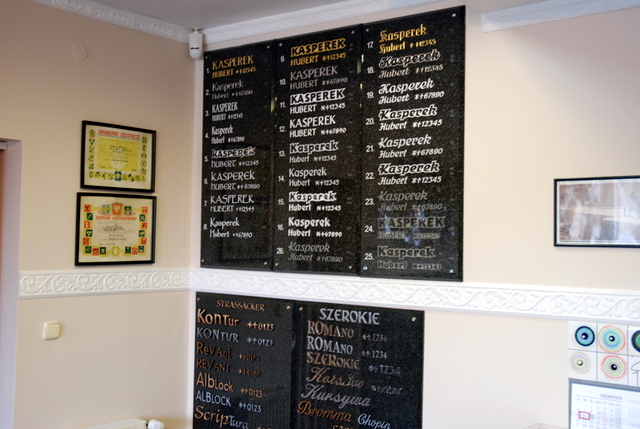 1. KASPEREK
HUBERT *+12345
2. Kasperek
Hubert *+67890
3. KASPEREK
HUBERT *+12345
4. Kasperek
Hubert *+67890
5. KASPEREK
HUBERT *+12345
6. KASPEREK
HUBERT *+67890
7. KASPEREK
HUBERT *+12345
8. Kasperek
Hubert *+67890
9. KASPEREK
HUBERT *+12345
10. KASPEREK
HUBERT *+67890
11. KASPEREK
HUBERT N+12345
12. KASPEREK
HUBERT N+67890
13. Kasperek
Hubert N+12345
14. Kasperek
Hubert N+67890
15. Kasperek
Hubert N+12345
16. Kasperek
Hubert N+67890
26. Kasperek
Hubert *+67890
17. Kasperek
Hubert *+12345
18. Kasperek
Hubert *+12345
19. Kasperek
Hubert *+67890
20. Kasperek
Hubert *+12345
21. Kasperek
Hubert *+67890
22. Kasperek
Hubert *+12345
23. Kasperek
Hubert *+67890
24. KASPEREK
25. Kasperek
Hubert N+12345
STRASSACKER
KonTur *+0123
KONTUR *+0123
AlbLock *+0123
ALBLOCK *+0123
ScripTura
SZEROKIE
ROMANO
*+1234
ROMANO
*+1234
SZEROKIE
*+1234
Kursywa
Bromma Chopin